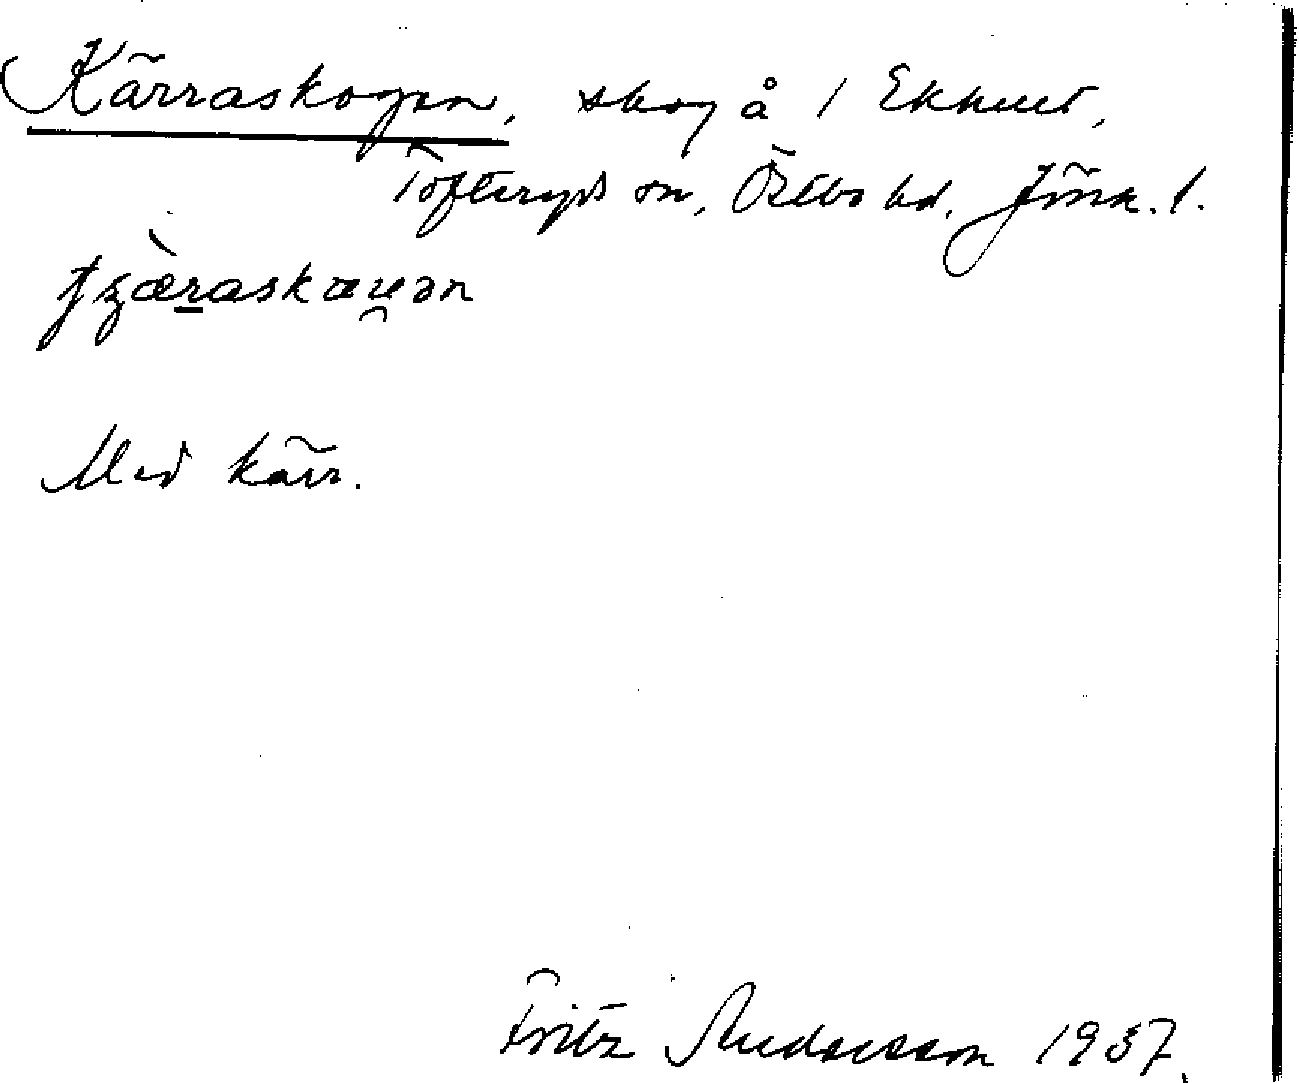 Kärraskogen, skog å 1 Ekhult,
Tofteryds sn, Östbo hd, Jönk. l.
Med kärr.
Fritz Andersson 1937.